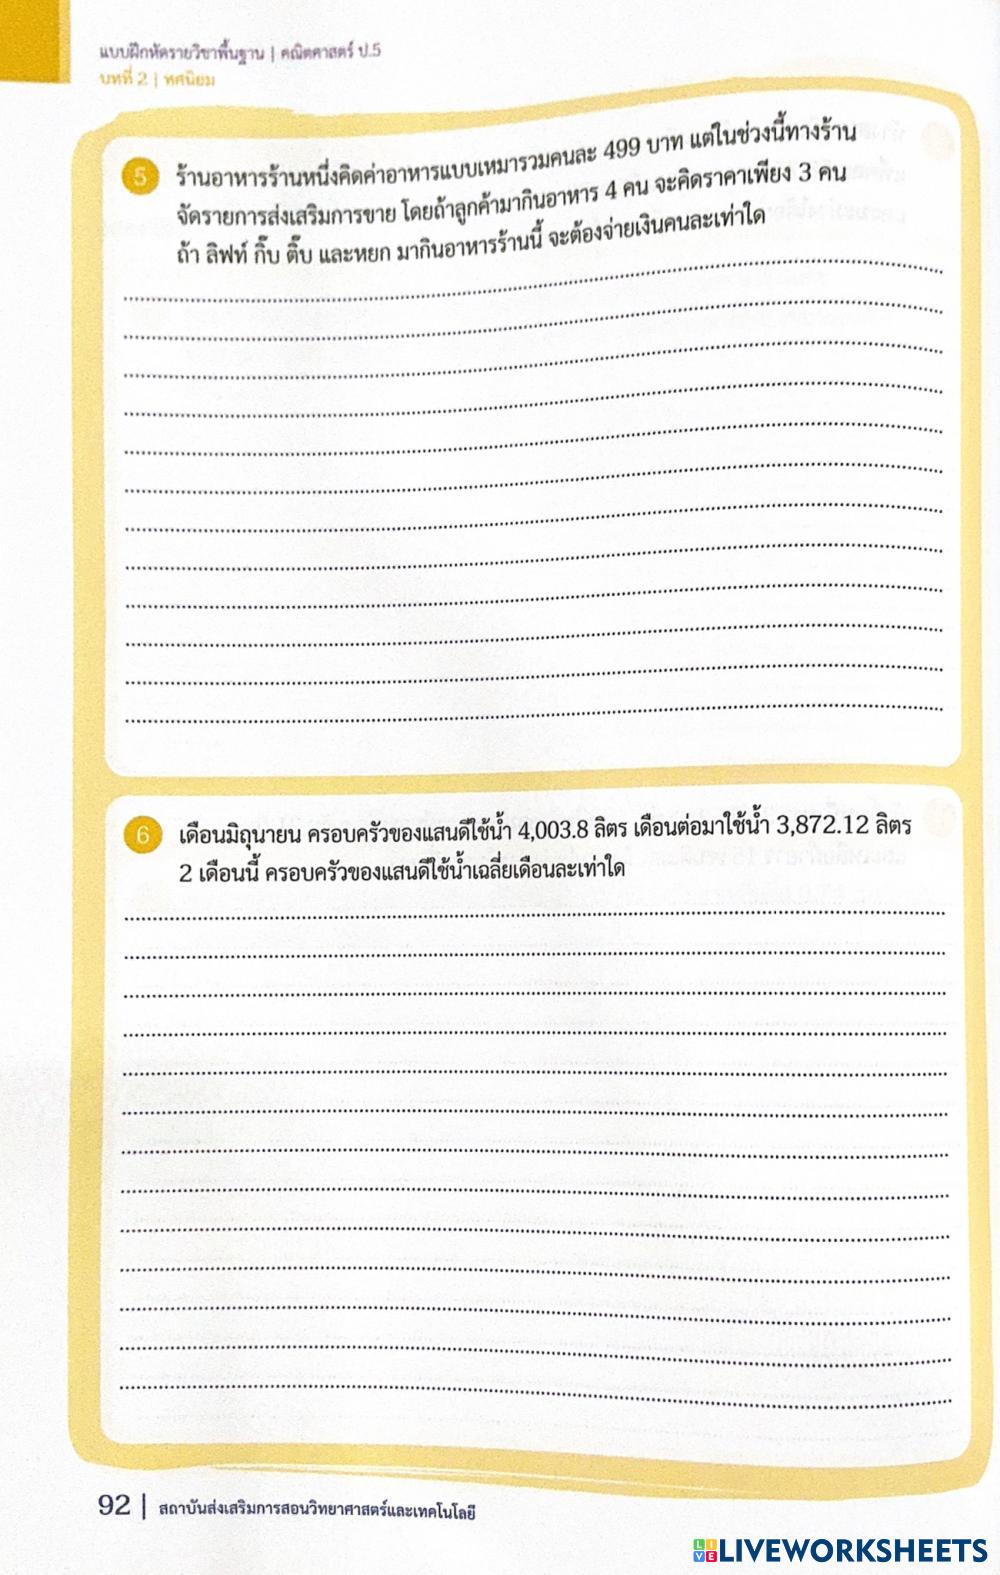 แบบฝึกหัดรายวิชาพื้นฐาน | คณิตศาสตร์ ป.5
บทที่ 2 | ทศนิยม
5 ร้านอาหารร้านหนึ่งคิดค่าอาหารแบบเหมารวมคนละ 499 บาท แต่ในช่วงนี้ทางร้าน
จัดรายการส่งเสริมการขาย โดยถ้าลูกค้ามากินอาหาร 4 คน จะคิดราคาเพียง 3 คน
ถ้า ลิฟท์ กิ๊บ ติ๊บ และหยก มากินอาหารร้านนี้ จะต้องจ่ายเงินคนละเท่าใด
6 เดือนมิถุนายน ครอบครัวของแสนดีใช้น้ำ 4,003.8 ลิตร เดือนต่อมาใช้น้ำ 3,872.12 ลิตร
2 เดือนนี้ ครอบครัวของแสนดีใช้น้ำเฉลี่ยเดือนละเท่าใด
92 | สถาบันส่งเสริมการสอนวิทยาศาสตร์และเทคโนโลยี
LIVE LIVEWORKSHEETS